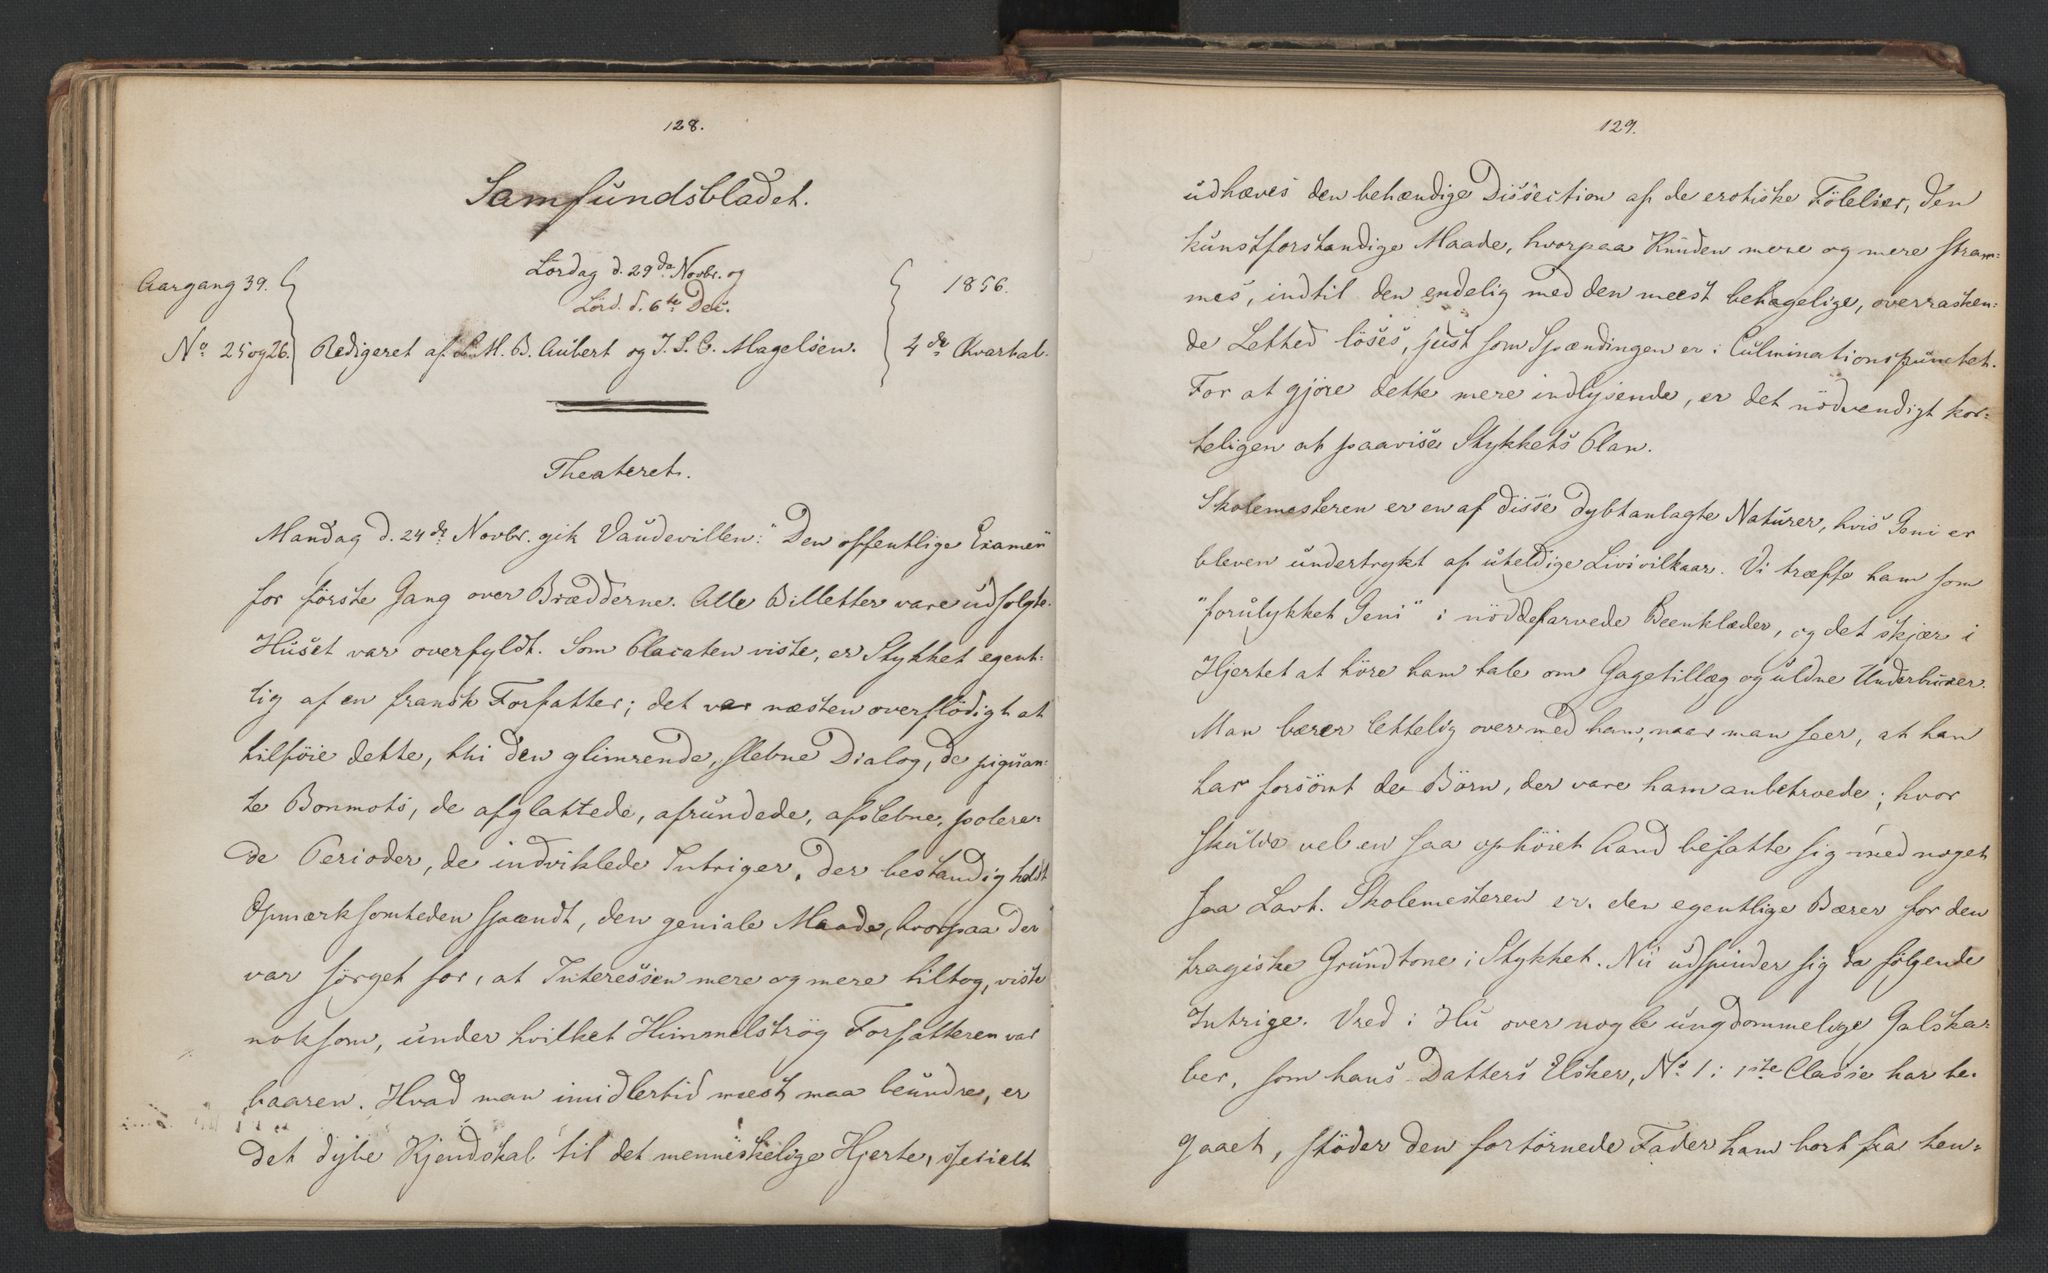 128.
Samfundsbladet.
Lördag d. 29de Novbr. og
Lörd. d. 6te Dec.
Aargang 39.
1856.
No 25 og 26.
Redigeret af L. M. B. Aubert og J. S. C. Magelsen.
4de Kvartal.
Theateret.
Mandag d. 24de Novbr. gik Vaudevillen: "Den offentlige Examen"
for förste Gang over Brædderne. Alle Billetter vare udsolgte.
Huset var overfyldt. Som Placaten viste, er Stykket egent-
lig af en fransk Forfatter; det var næsten overflödigt at
tilföie dette, thi den glimrende, slebne Dialog, de piquan-
te Bonmots, de afglattede, afrundede, afslebne, polere-
de Perioder, de indviklede Intriger, der bestandig holdt
Opmærksomheden spændt, den geniale Maade, hvorpaa der
var sörget for, at Interessen mere og mere tiltog, viste
noksom, under hvilket Himmelströg Forfatteren var
baaren. Hvad man imidlertid meest maa beundre, er
det dybe Kjendskab til det menneskelige Hjerte, specielt
129.
udhæves den behændige Dissection af de erotiske Fölelser, den
kunstforstandige Maade, hvorpaa Knuden mere og mere stram-
mes, indtil den endelig med den meest behagelige, overrasken-
de Lethed löses, just som Spændingen er i Culminationspunctet.
For at gjöre dette mere indlysende, er det nödvendigt kor-
teligen at paavise Stykkets Plan.
Skolemesteren er en af disse dybtanlagte Naturer, hvis Geni er
bleven undertrykt af uheldige Livsvilkaar. Vi træffe ham som
"forulykket Geni" i nöddefarvede Beenklæder, og det skjær i
Hjertet at höre ham tale om Gagetillæg og uldne Underbuxer.
Man bærer lettelig over med ham, naar man seer, at han
har forsömt de Börn, der vare ham anbetroede; hvor
skulde vel en saa ophöiet Aand befatte sig med noget
saa Lavt. Skolemesteren er den egentlige Bærer for den
tragiske Grundtone i Stykket. Nu udspinder sig da fölgende
Intrige. Vred i Hu over nogle ungdommelige Galska-
ber, som hans Datters Elsker, No 1 i 1ste Classe har be-
gaaet, stöder den fortörnede Fader ham bort fra hen-